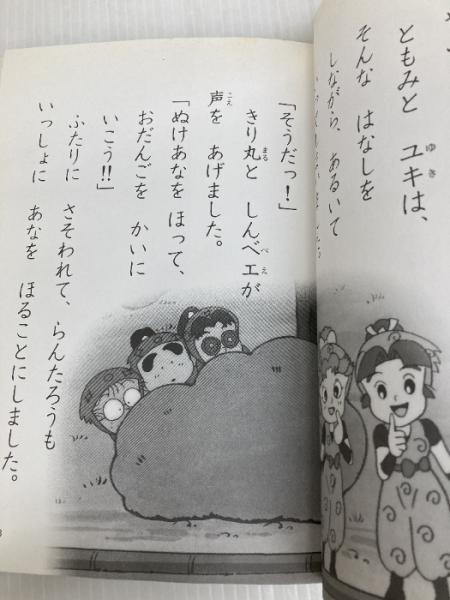 ともみと ユキは、
そんな はなしを
しながら、あるいて
「そうだっ！」
きり丸と しんべエが
声を あげました。
「ぬけあなを ほって、
おだんごを かいに
いこう!!」
ふたりに さそわれて、らんたろうも
いっしょに あなを ほることにしました。